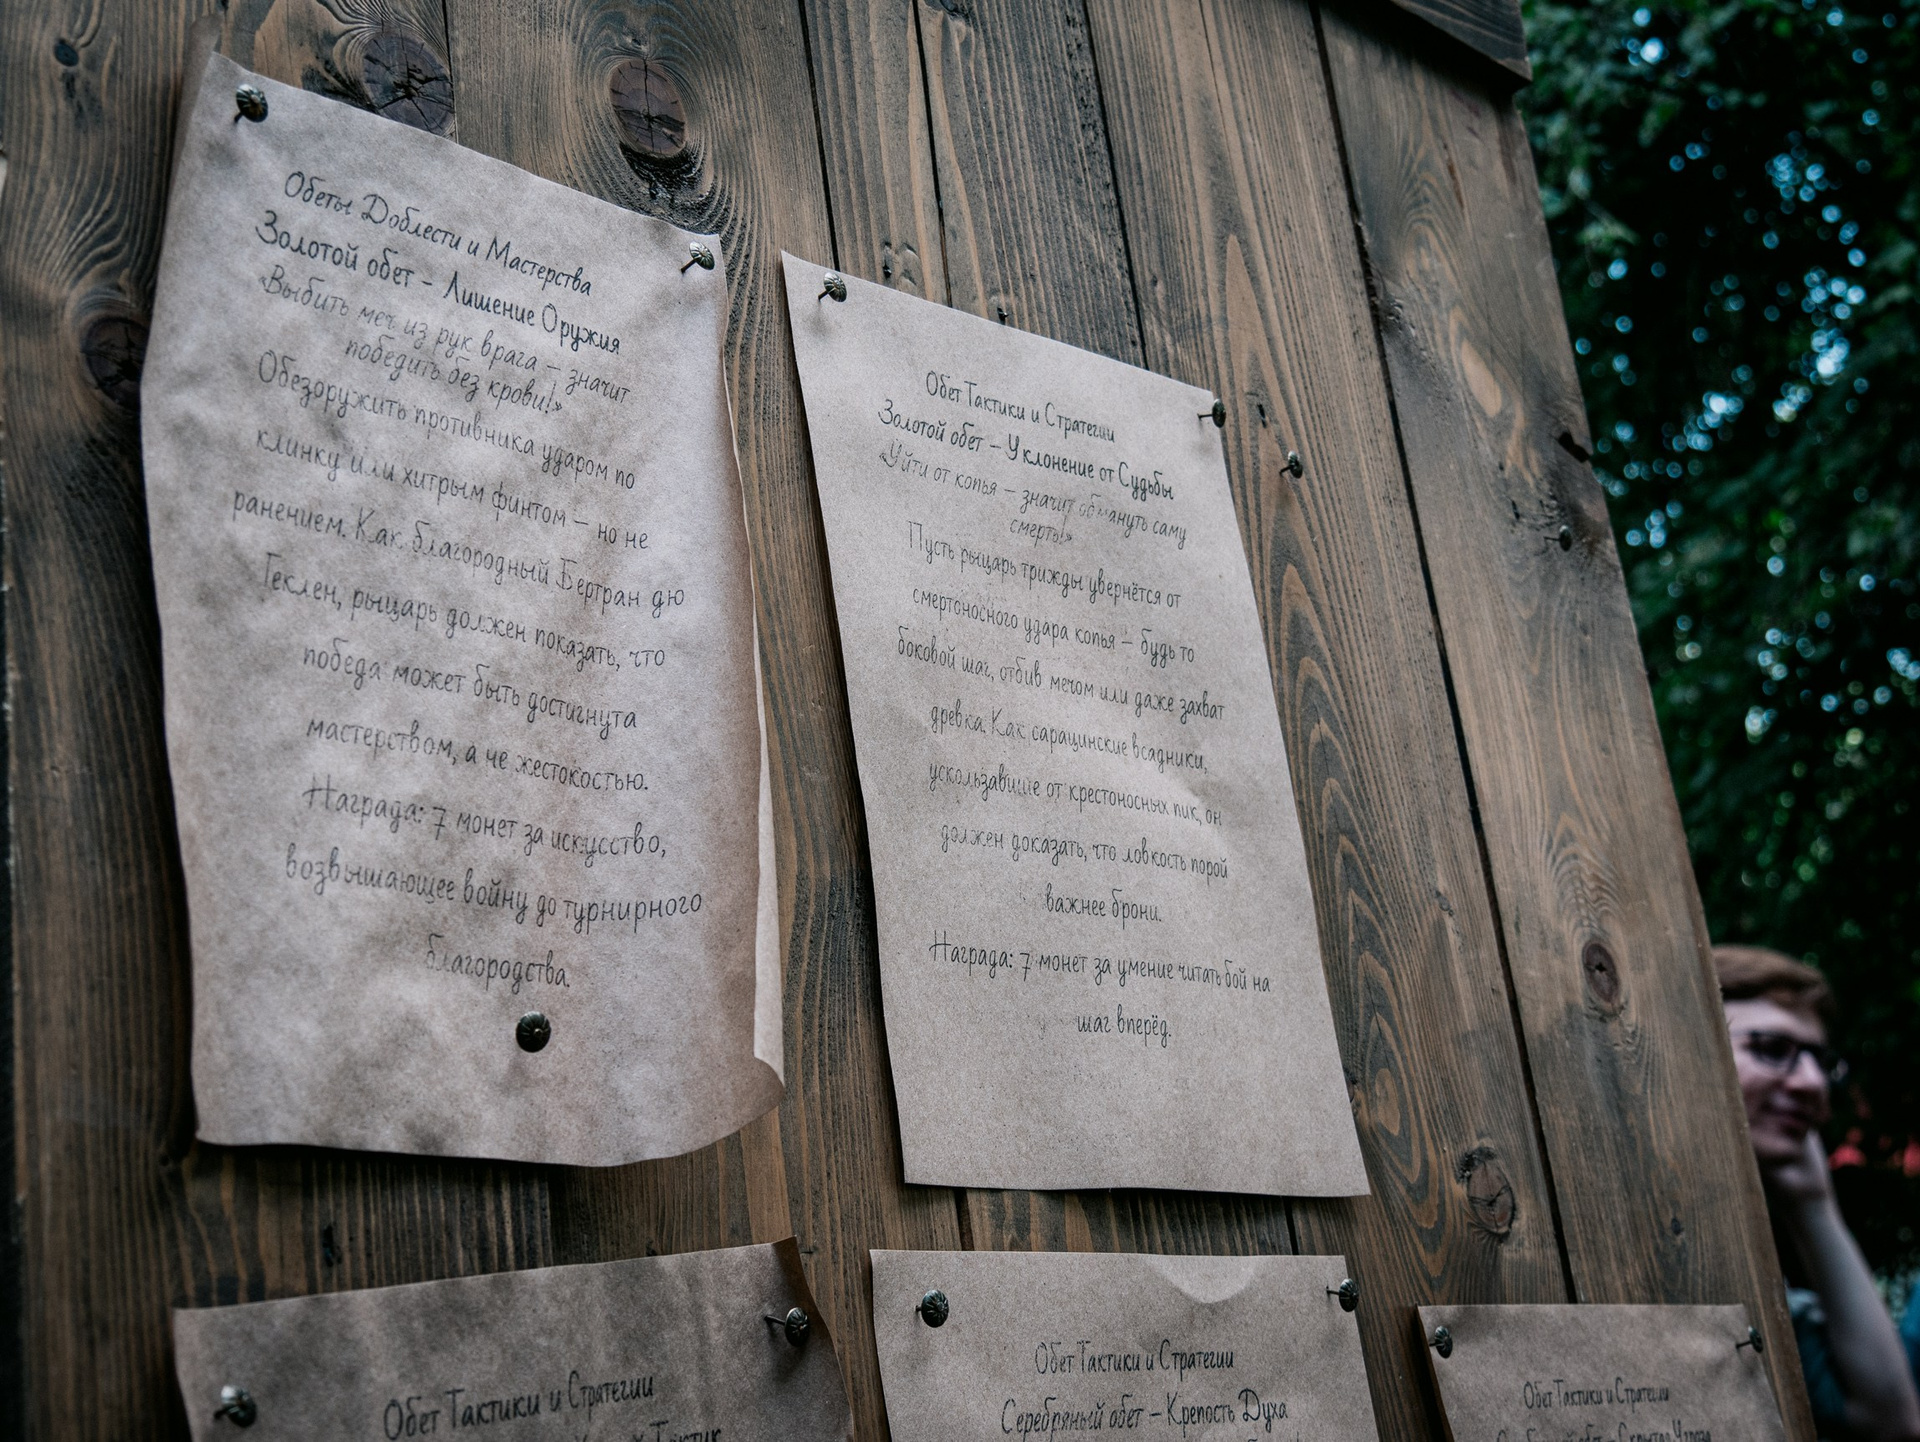 Обеты Доблести и Мастерства
Золотой обет – Лишение Оружия
«Выбить меч из рук врага – значит
победить без крови!»
Обезоружить противника ударом по
клинку или хитрым финтом – но не
ранением. Как благородный Бертран дю
Геклен, рыцарь должен показать, что
победа может быть достигнута
мастерством, а не жестокостью.
Награда: 7 монет за искусство,
возвышающее войну до турнирного
благородства.
Обет Тактики и Стратегии
Золотой обет – Уклонение от Судьбы
«Уйти от копья – значит обмануть саму
смерть!»
Пусть рыцарь трижды увернётся от
смертоносного удара копья – будь то
боковой шаг, отбив мечом или даже захват
древка. Как сарацинские всадники,
ускользавшие от крестоносных пик, он
должен доказать, что ловкость порой
важнее брони.
Награда: 7 монет за умение читать бой на
шаг вперёд.
Обет Тактики и Стратегии
Тактик
Обет Тактики и Стратегии
Серебряный обет – Крепость Духа
Обет Тактики и Стратегии